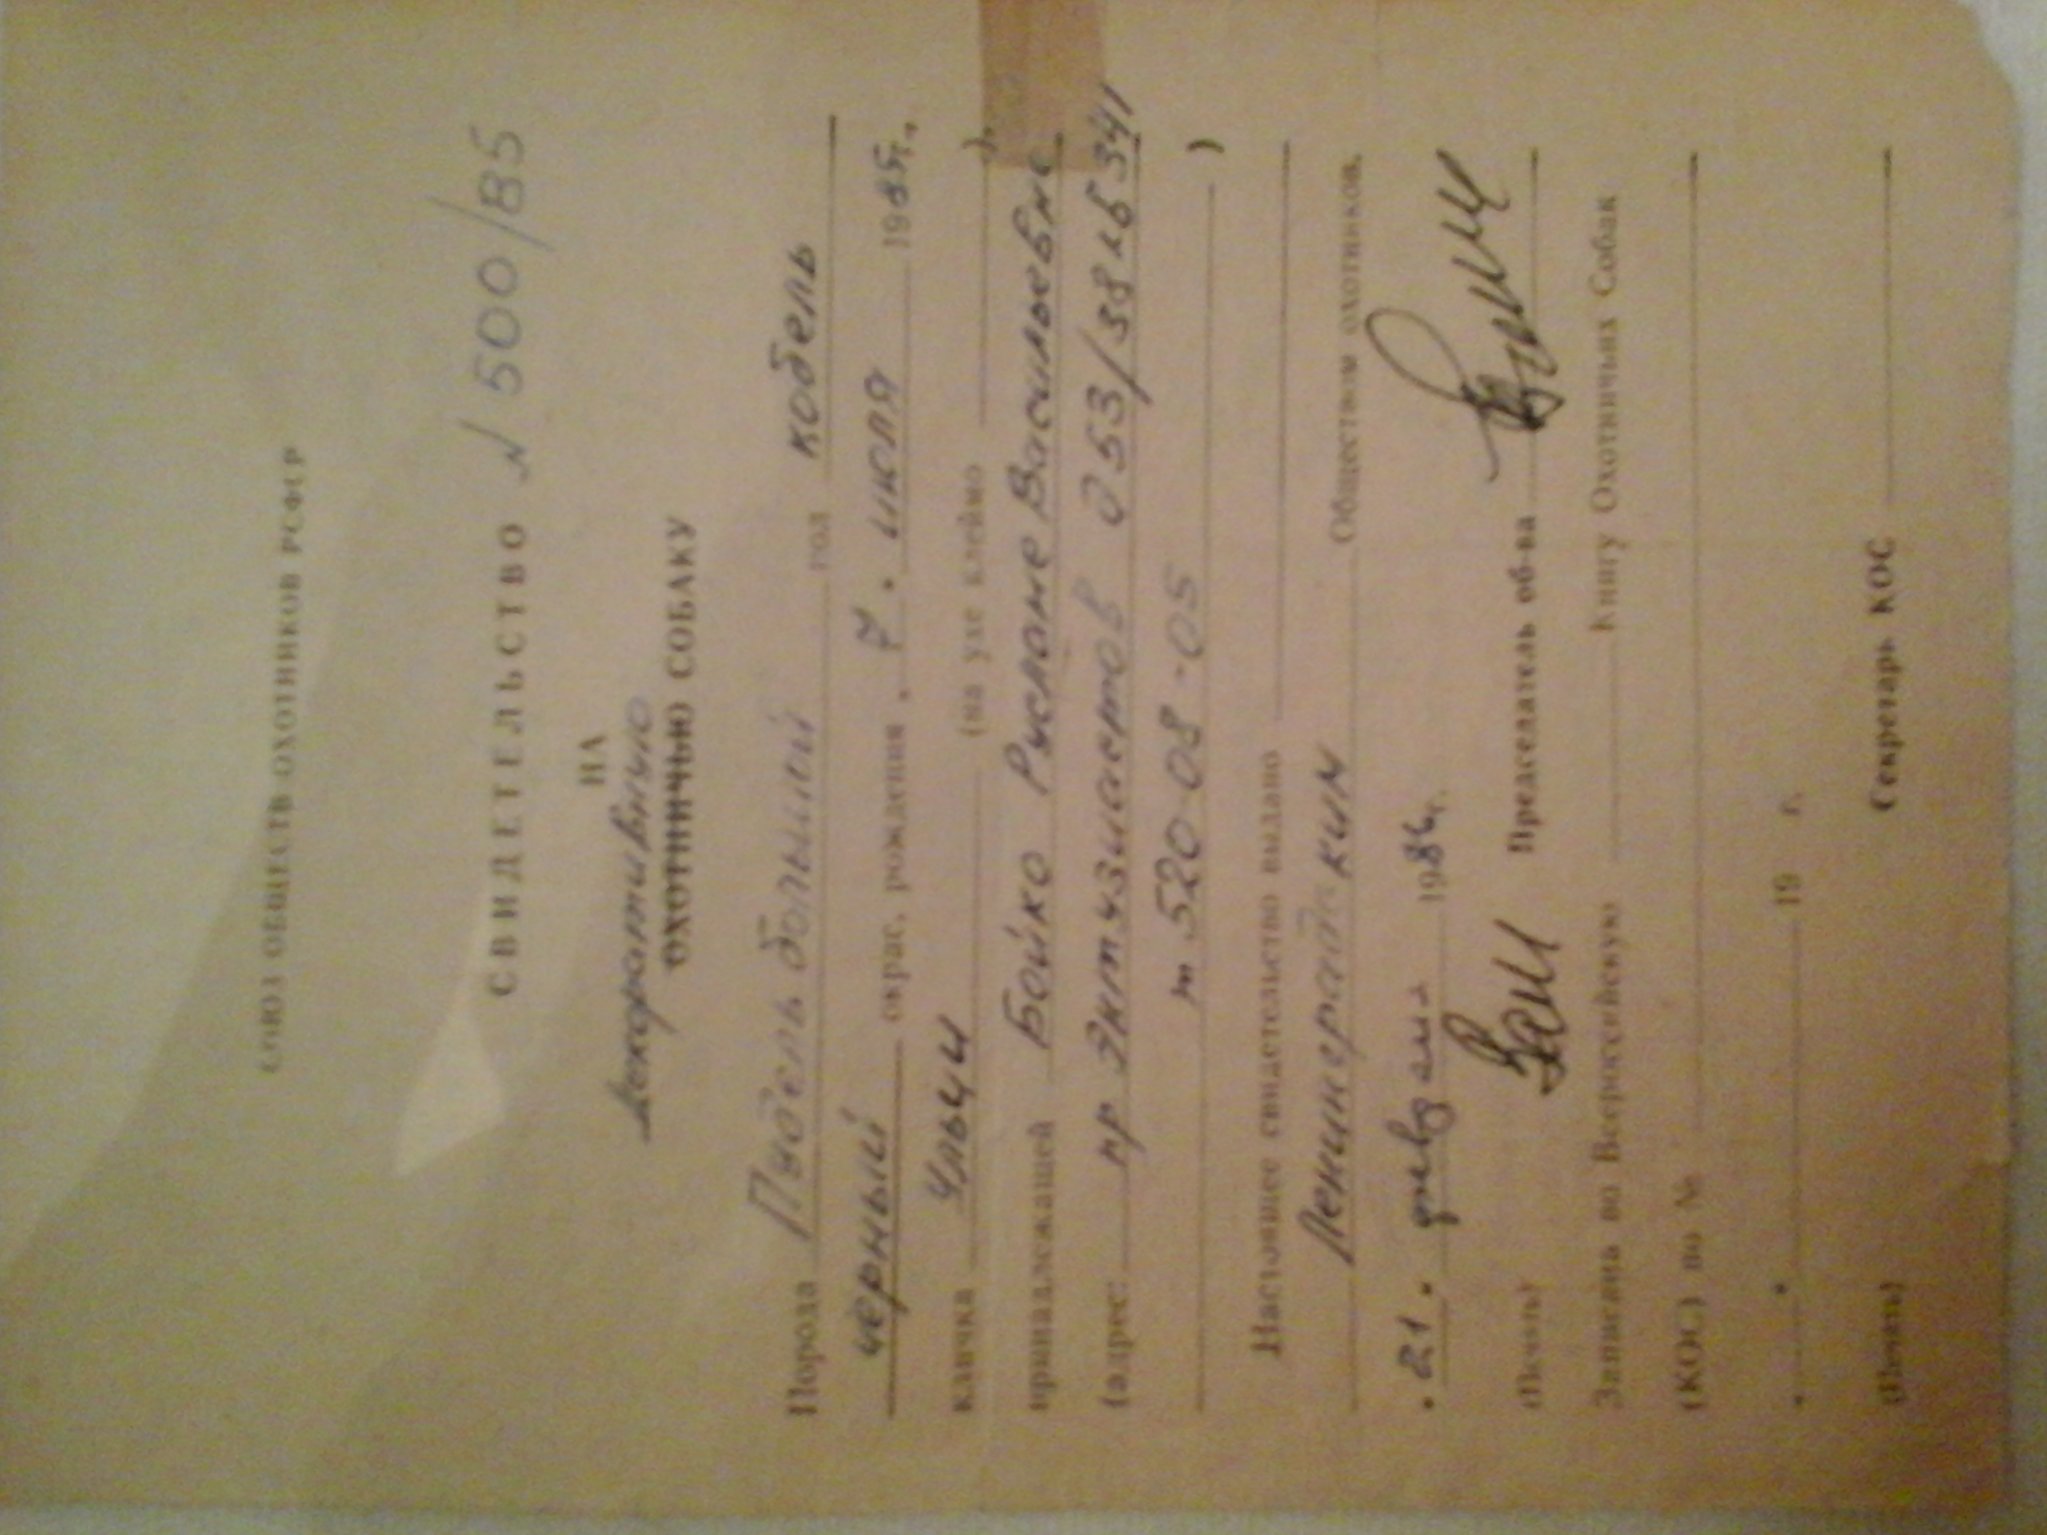 СОЮЗ ОБЩЕСТВ ОХОТНИКОВ РСФСР
СВИДЕТЕЛЬСТВО № 500/85
НА
декоративную
ОХОТНИЧЬЮ СОБАКУ
Порода Пудель большой пол кобель
черный окрас, рождения „ 7 " июля 1985 г.,
кличка Ульци (на ухе клеймо ),
принадлежащей Бойко Руслане Васильевне
(адрес: пр Энтузиастов д 53/38 кв 341
т 520-08-05 )
Настоящее свидетельство выдано
Ленинградским Обществом охотников.
„ 21 " 1986 г.
(Печать) Председатель об-ва
Записань во Всероссийскую Книгу Охотничьих Собак
(КОС) по №
„ " 19 г.
(Печать) Секретарь КОС